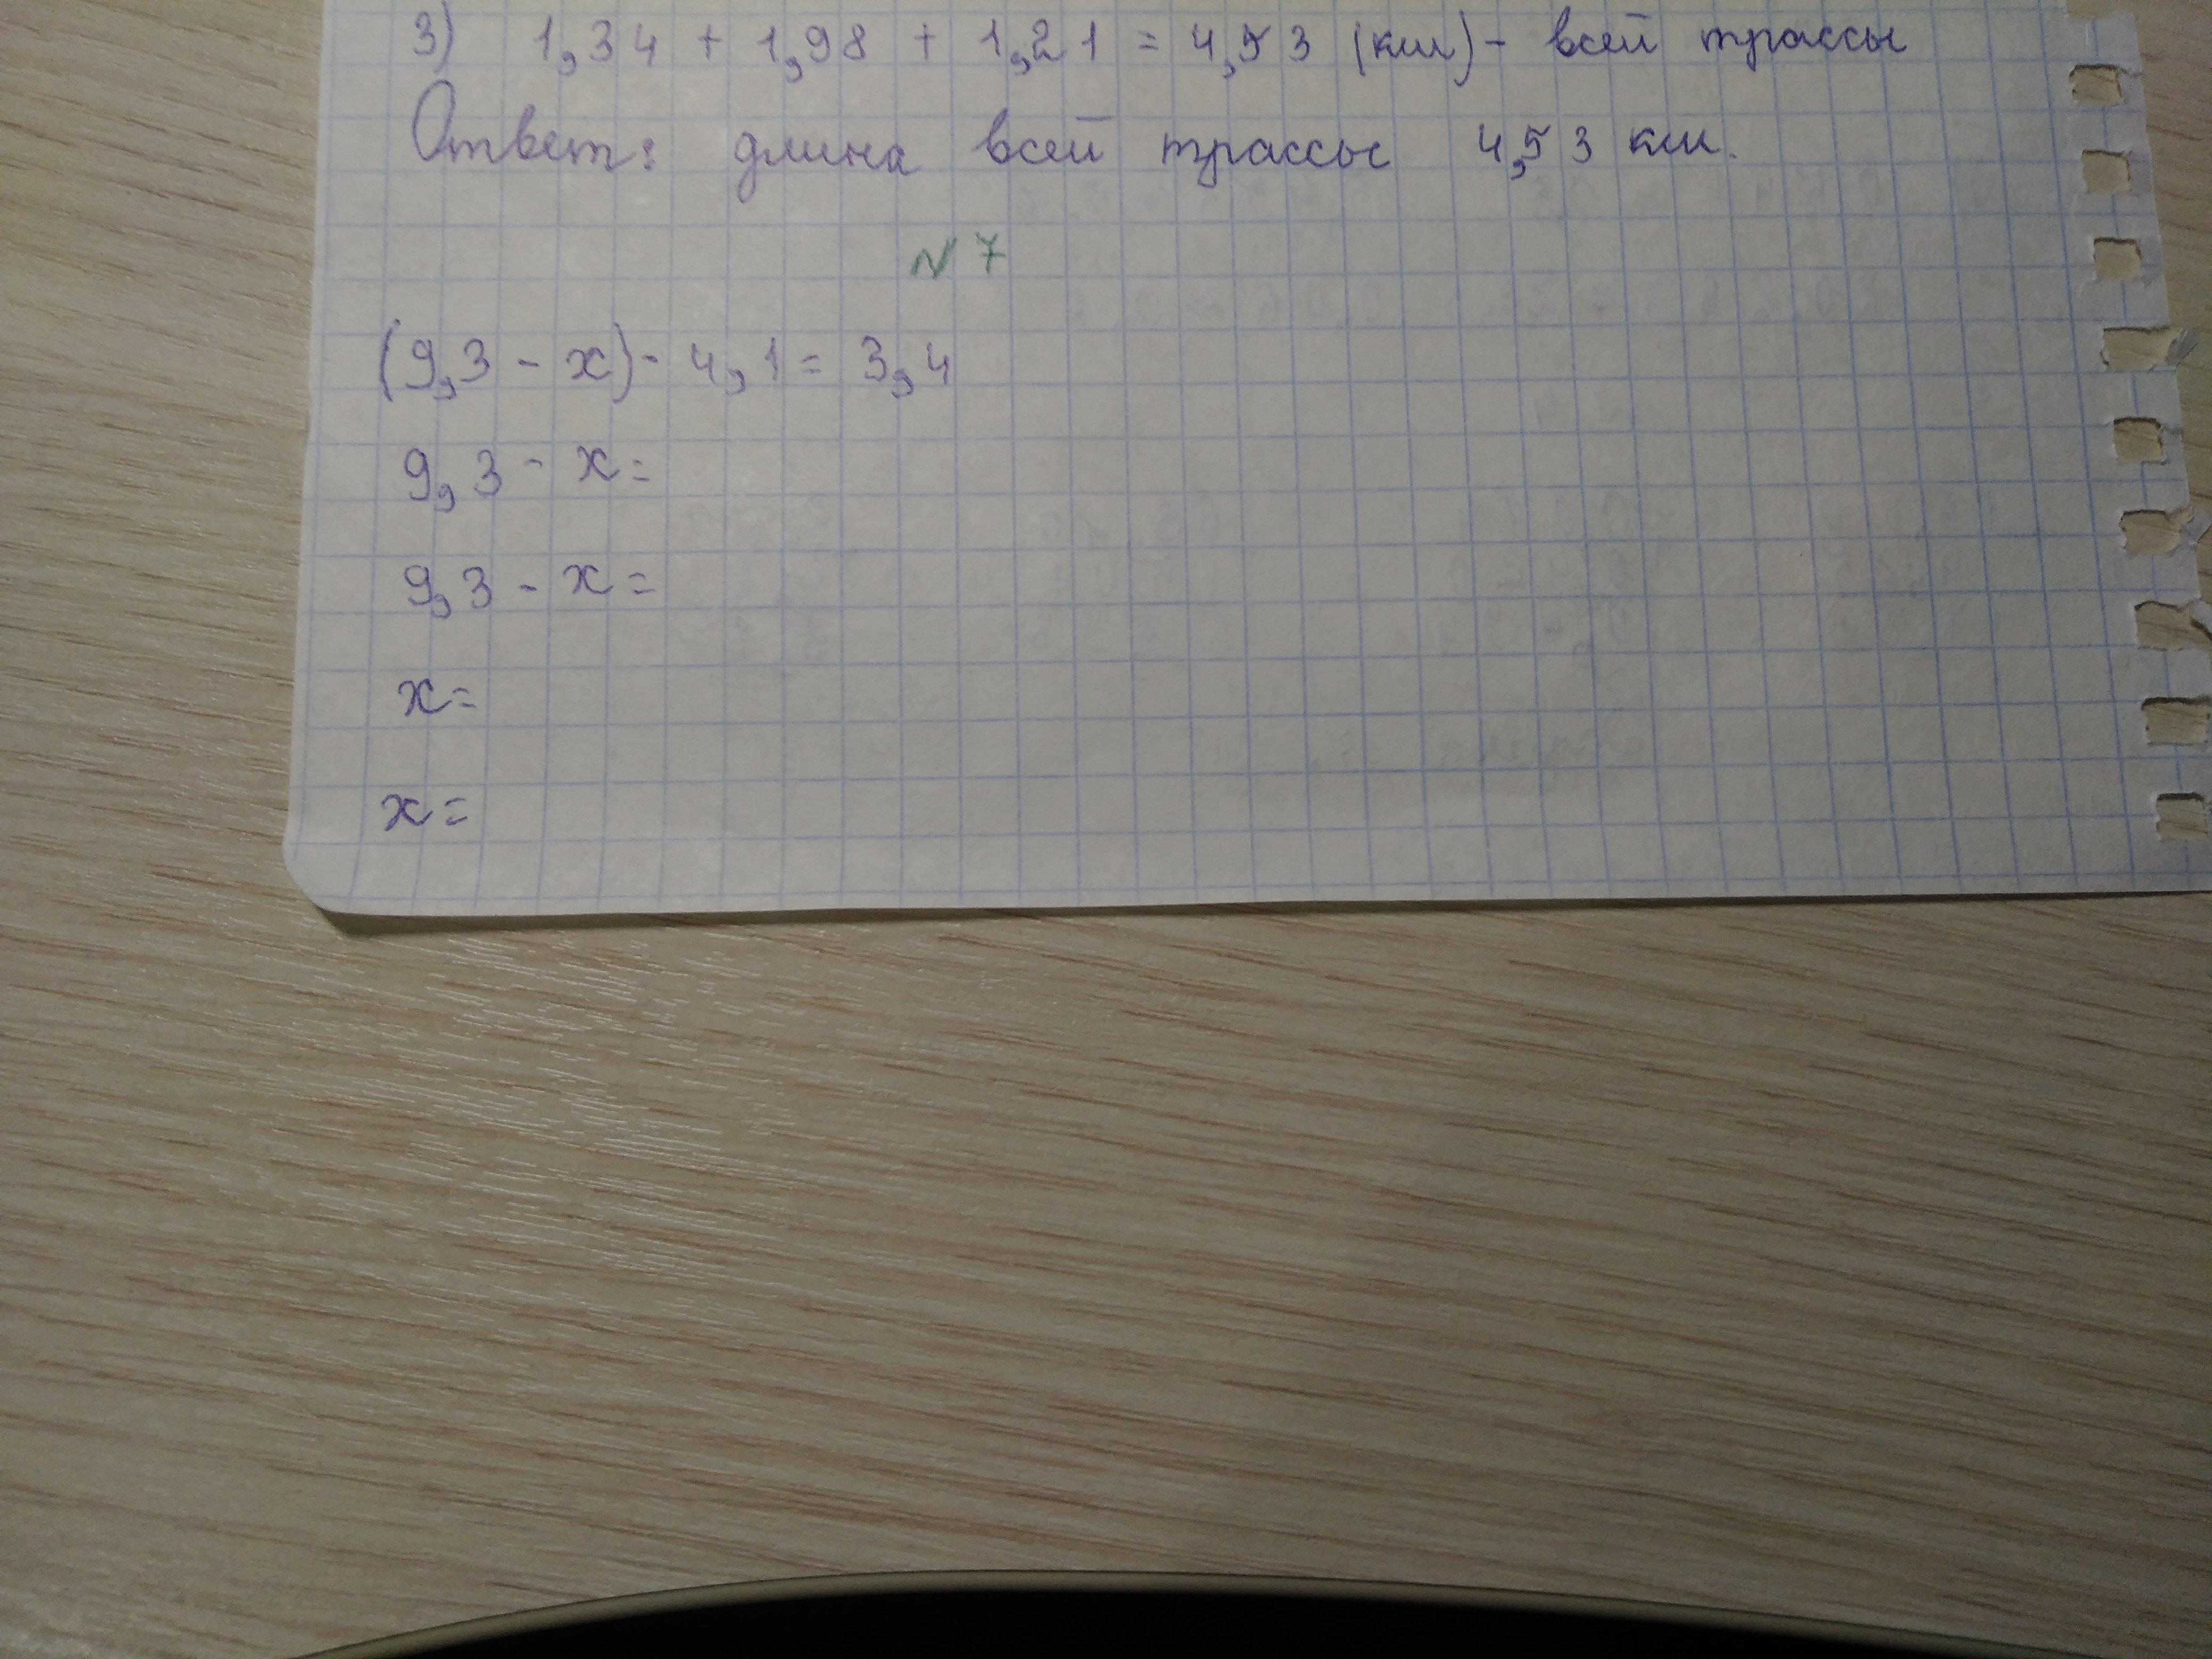 3) 1,34 + 1,98 + 1,21 = 4,53 (км) - всей трассы
Ответ: длина всей трассы 4,53 км.
N 7
(9,3 - x) - 4,1 = 3,4
9,3 - x =
9,3 - x =
x =
x =